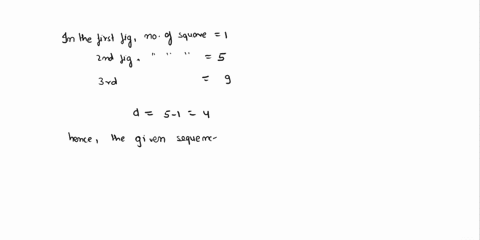 In the first fig, no. of square = 1
2nd fig. " " " = 5
3rd = 9
d = 5-1 = 4
hence, the given sequenc